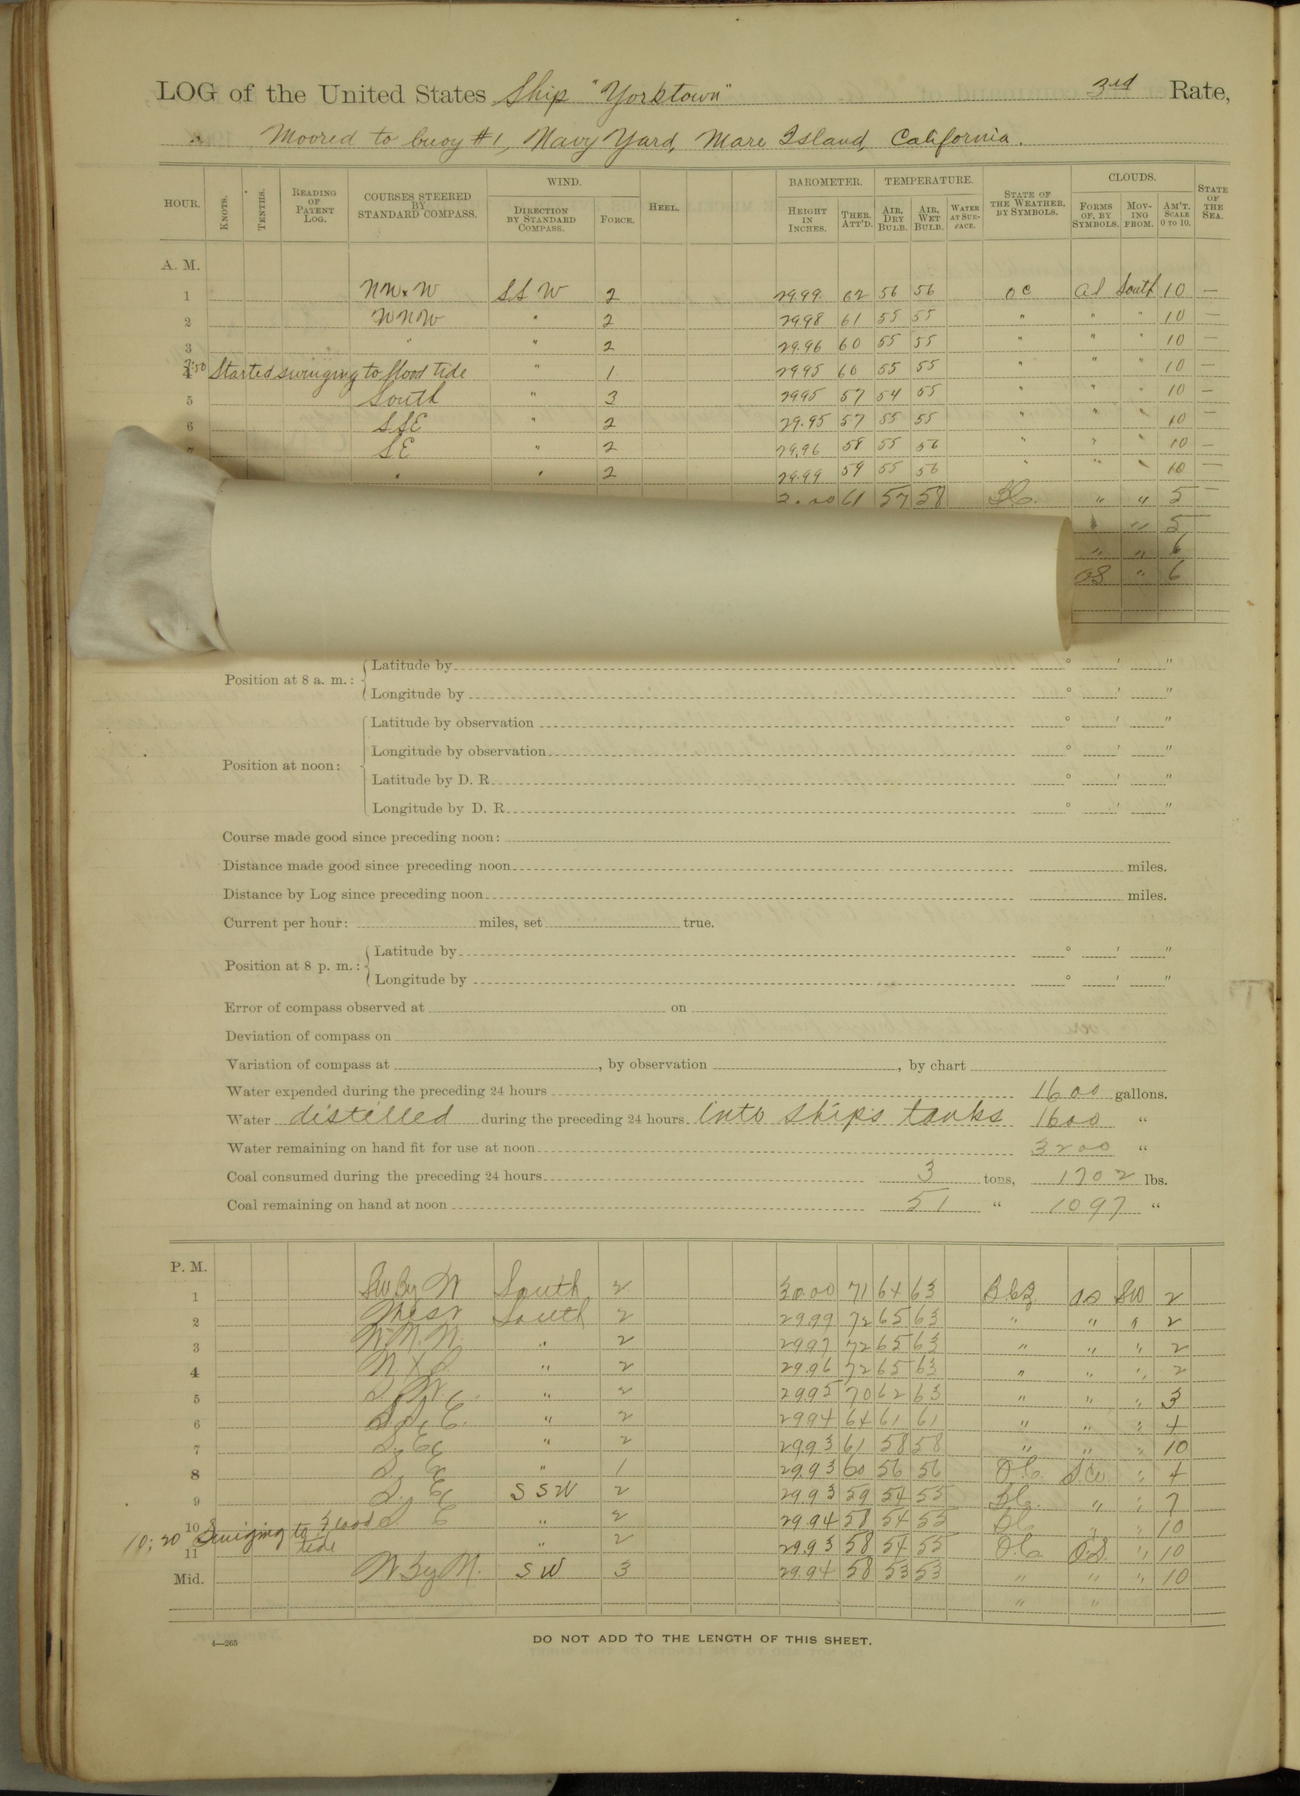 LOG of the United States Ship "Yorktown" 3rd Rate,
Moored to buoy #1, Navy Yard, Mare Island, California.
HOUR. KNOTS. TENTHS. READING OF PATENT LOG. COURSES STEERED BY STANDARD COMPASS. WIND. DIRECTION BY STANDARD COMPASS. FORCE. HEEL. BAROMETER. HEIGHT IN INCHES. THER. ATT'D. TEMPERATURE. AIR, DRY BULB. AIR, WET BULB. WATER AT SURFACE. STATE OF THE WEATHER, BY SYMBOLS. CLOUDS. FORMS OF, BY SYMBOLS. MOVING FROM. AM'T. SCALE 0 TO 10. STATE OF THE SEA.
A. M.
1 SSW 2 29.99 62 56 56 oc South 10 —
2 WNW " 2 29.98 61 55 55 " " " 10 —
3 " " 2 29.96 60 55 55 " " " 10 —
4 3:50 Started swinging to flood tide " 1 29.95 60 55 55 " " " 10 —
5 South " 3 29.95 57 54 55 " " 10 —
6 SSE " 2 29.95 57 55 55 " " 10 —
7 SE " 2 29.96 58 55 56 " " " 10 —
" " 2 29.99 59 55 56 " " " 10 —
61 57 58 " " 5 —
" 5
" " 6
" 6
Position at 8 a. m.: Latitude by ° ' "
Longitude by ° ' "
Position at noon: Latitude by observation ° ' "
Longitude by observation ° ' "
Latitude by D. R. ° ' "
Longitude by D. R. ° ' "
Course made good since preceding noon:
Distance made good since preceding noon miles.
Distance by Log since preceding noon miles.
Current per hour: miles, set true.
Position at 8 p. m.: Latitude by ° ' "
Longitude by ° ' "
Error of compass observed at on
Deviation of compass on
Variation of compass at , by observation , by chart
Water expended during the preceding 24 hours 1600 gallons.
Water distilled during the preceding 24 hours into ships tanks 1600 "
Water remaining on hand fit for use at noon 3200 "
Coal consumed during the preceding 24 hours 3 tons, 1702 lbs.
Coal remaining on hand at noon 51 " 1097 "
P. M.
1 South 2 30.00 71 64 63 SW 2
2 West South 2 29.99 72 65 63 " " " 2
3 " 2 29.97 72 65 63 " " " 2
4 " 2 29.96 72 65 63 " " " 2
5 " 2 29.95 70 62 63 " " " 3
6 " 2 29.94 64 61 61 " " " 4
7 " 2 29.93 61 58 58 " " " 10
8 " 1 29.93 60 56 56 " 4
9 SSW 2 29.93 59 54 53 " " 7
10 " 2 29.94 58 54 53 " " 10
10:20 Swinging to flood tide
11 " 2 29.93 58 54 55 " 10
Mid. W By N. SW 3 29.94 58 53 53 " " " 10
" "
4—265
DO NOT ADD TO THE LENGTH OF THIS SHEET.